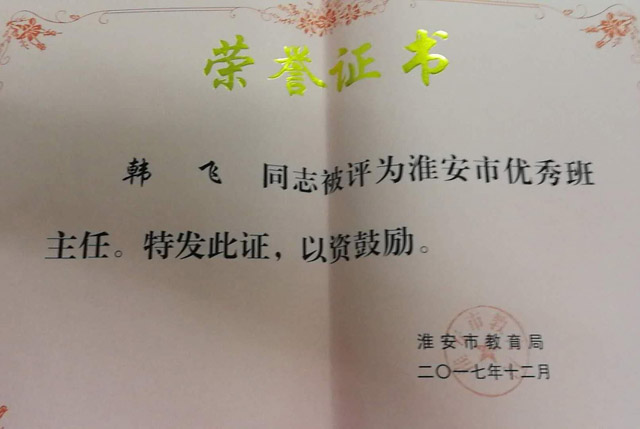 荣誉证书
韩 飞 同志被评为淮安市优秀班
主任。特发此证，以资鼓励。
淮安市教育局
二〇一七年十二月